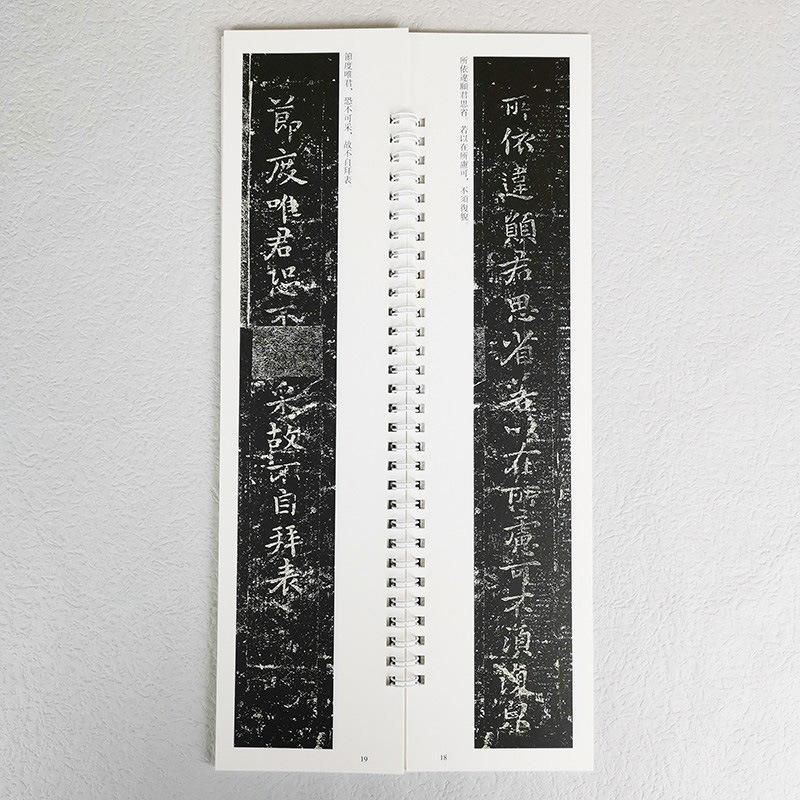 所依違願君思省若以在所慮可不須復皃
所依違願君思省 若以在所慮可、不須復貌
18
節度唯君、恐不可采、故不自拜表
節度唯君恐不采故不自拜表
19